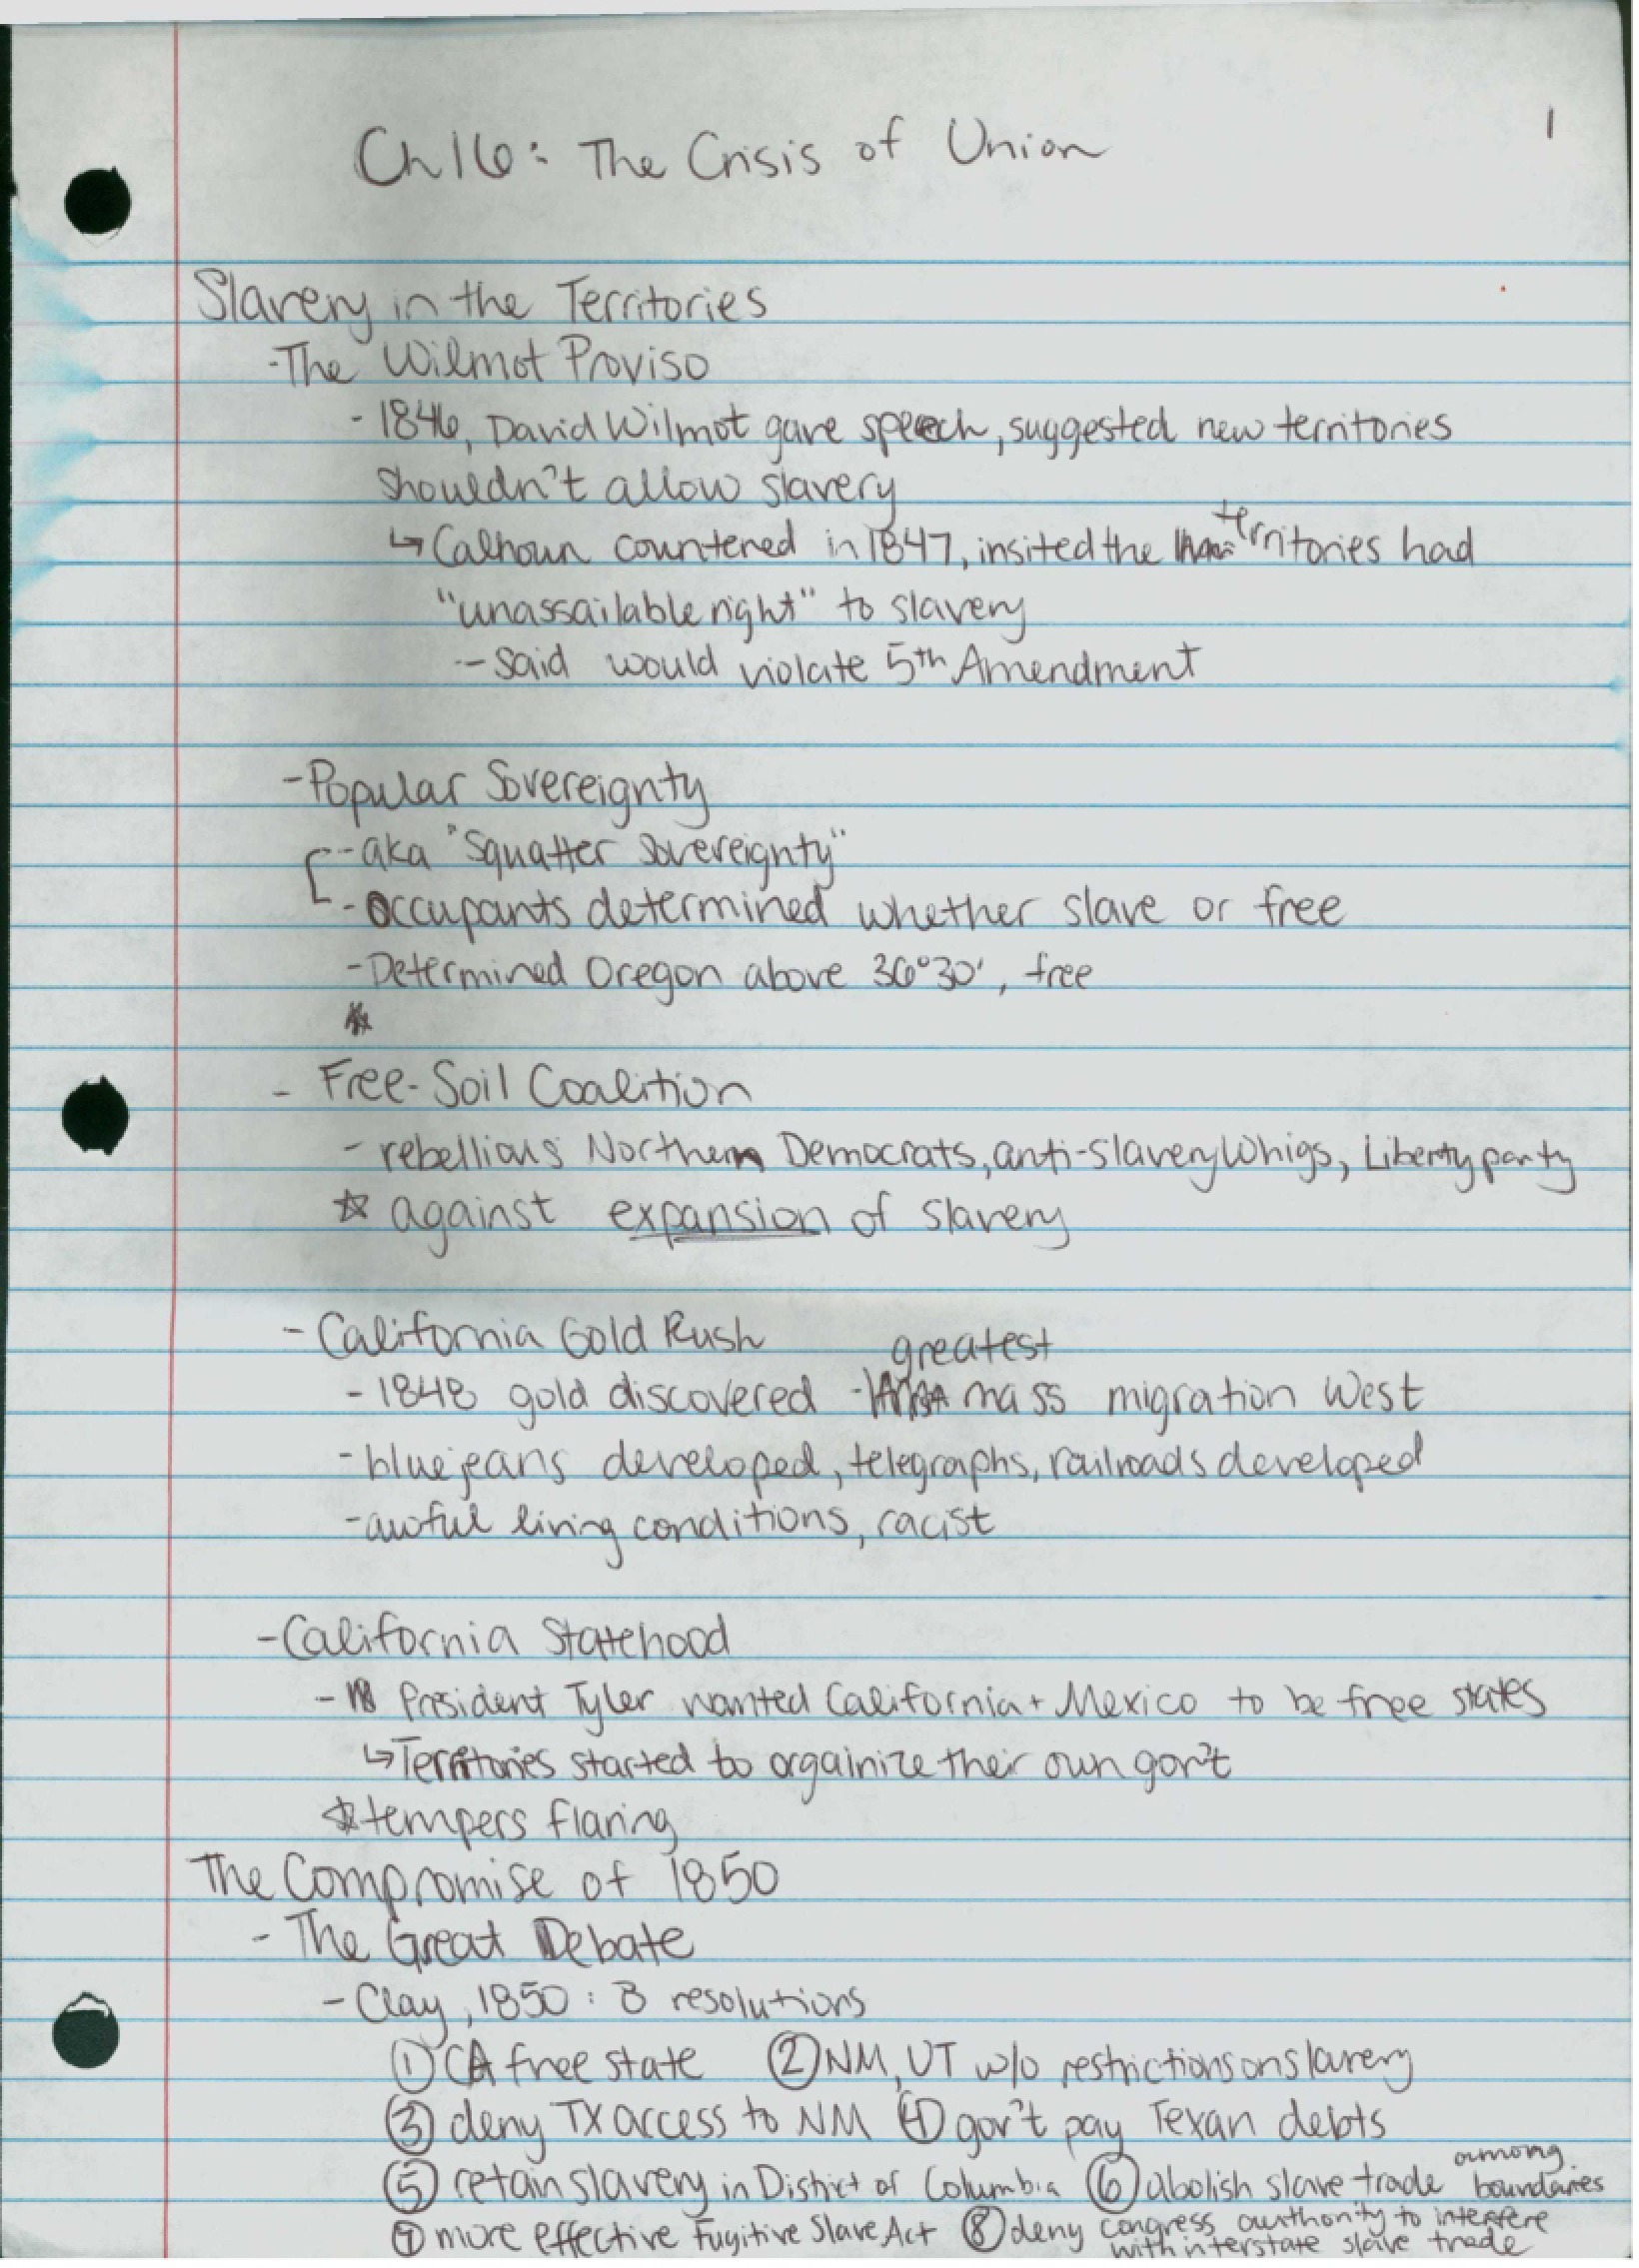 Ch 16: The Crisis of Union
1
Slavery in the Territories
-The Wilmot Proviso
- 1846, David Wilmot gave speech, suggested new territories
shouldn't allow slavery
↳ Calhoun countered in 1847, insited the territories had
"unassailable right" to slavery
- said would violate 5th Amendment
- Popular Sovereignty
- aka "Squatter Sovereignty"
- occupants determined whether slave or free
- Determined Oregon above 36°30', free
- Free-Soil Coalition
- rebellious Northern Democrats, anti-slavery Whigs, Liberty party
☆ against expansion of slavery
- California Gold Rush
- 1848 gold discovered - greatest mass migration West
- blue jeans developed, telegraphs, railroads developed
- awful living conditions, racist
- California Statehood
- President Tyler wanted California + Mexico to be free states
↳ Territories started to orgainize their own gov't
☆ tempers flaring
The Compromise of 1850
- The Great Debate
- Clay, 1850: 8 resolutions
① CA free state ② NM, UT w/o restrictions on slavery
③ deny TX access to NM ④ gov't pay Texan debts
⑤ retain slavery in District of Columbia ⑥ abolish slave trade among boundaries
⑦ more effective Fugitive Slave Act ⑧ deny congress authority to interfere
with interstate slave trade